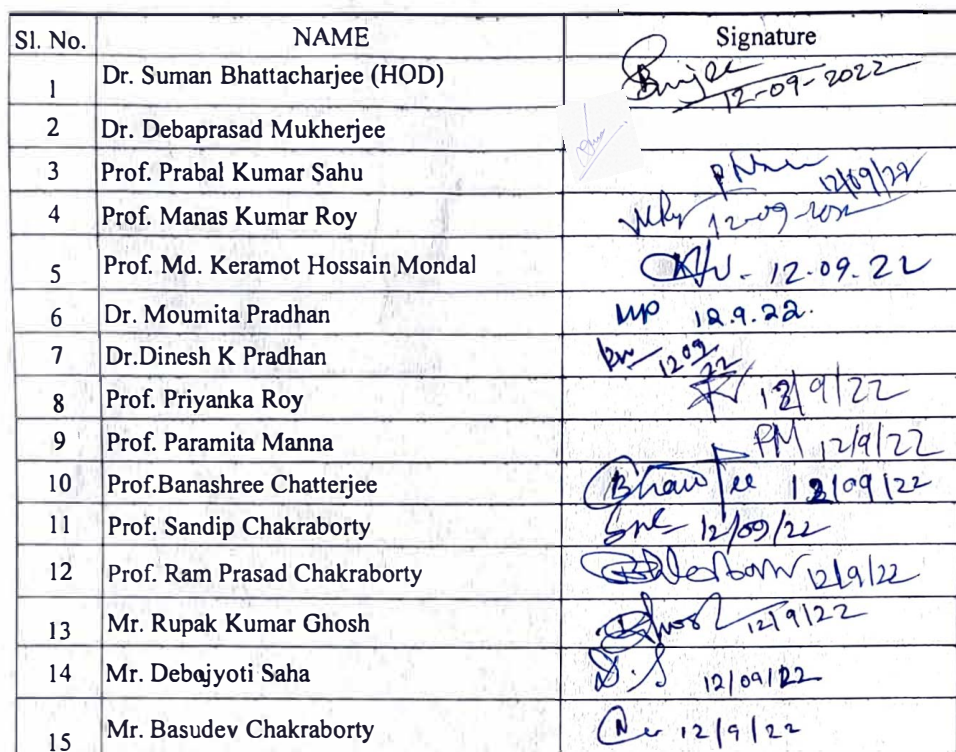 Sl. No. NAME Signature
1 Dr. Suman Bhattacharjee (HOD) 12-09-2022
2 Dr. Debaprasad Mukherjee
3 Prof. Prabal Kumar Sahu 12/09/22
4 Prof. Manas Kumar Roy 12-09-2022
5 Prof. Md. Keramot Hossain Mondal 12.09.22
6 Dr. Moumita Pradhan MP 12.9.22.
7 Dr.Dinesh K Pradhan 12 09 22
8 Prof. Priyanka Roy 12/9/22
9 Prof. Paramita Manna PM 12/9/22
10 Prof.Banashree Chatterjee 12/09/22
11 Prof. Sandip Chakraborty 12/09/22
12 Prof. Ram Prasad Chakraborty 12/9/22
13 Mr. Rupak Kumar Ghosh Ghosh 12/9/22
14 Mr. Debojyoti Saha D.S 12/09/22
15 Mr. Basudev Chakraborty 12/9/22